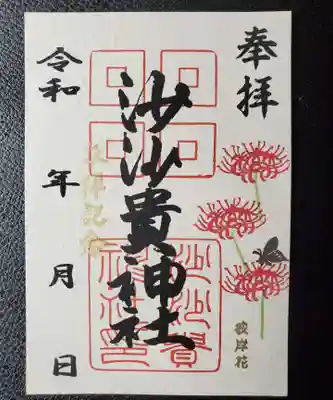 奉拝
彼岸花
沙沙貴神社
沙沙貴
神社印
令和 年 月 日